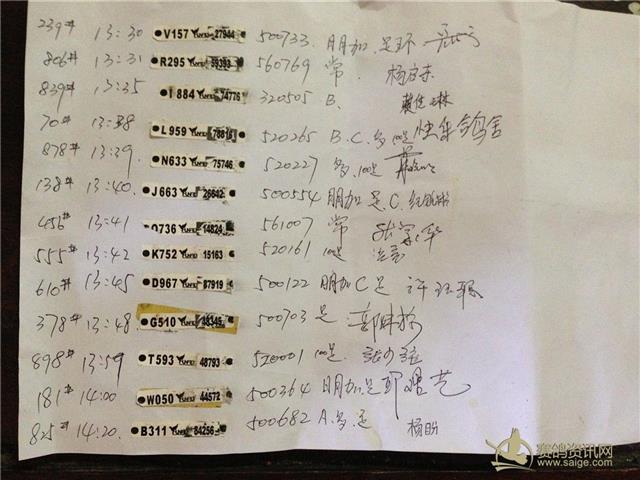 239# 13:30 V157 27944 500733. 朋加. 足环
806# 13:31 R295 59393 560769 常. 杨启东
839# 13:35 I 884 74776 320505 B.
70# 13:38 L959 78816 520265 B.C.多. 100足 快乐鸽舍
878# 13:39. N633 75746 520227 多. 100足
138# 13:40. J663 26642 500554 朋加 足.C.
456# 13:41 O736 14824 561007 常 张家华
555# 13:42 K752 15163 520161 100足
610# 13:45 D967 87919 500122 朋加 C 足 许
378# 13:48. G510 48345 500703 足 郭
898# 13:59 T593 48793 520001 100足.
181# 14:00 W050 44572 500364 朋加足 郭曙艺
825# 14:20. B311 84256 500682 A.多.足 杨盼
赛鸽资讯网
www.saige.com